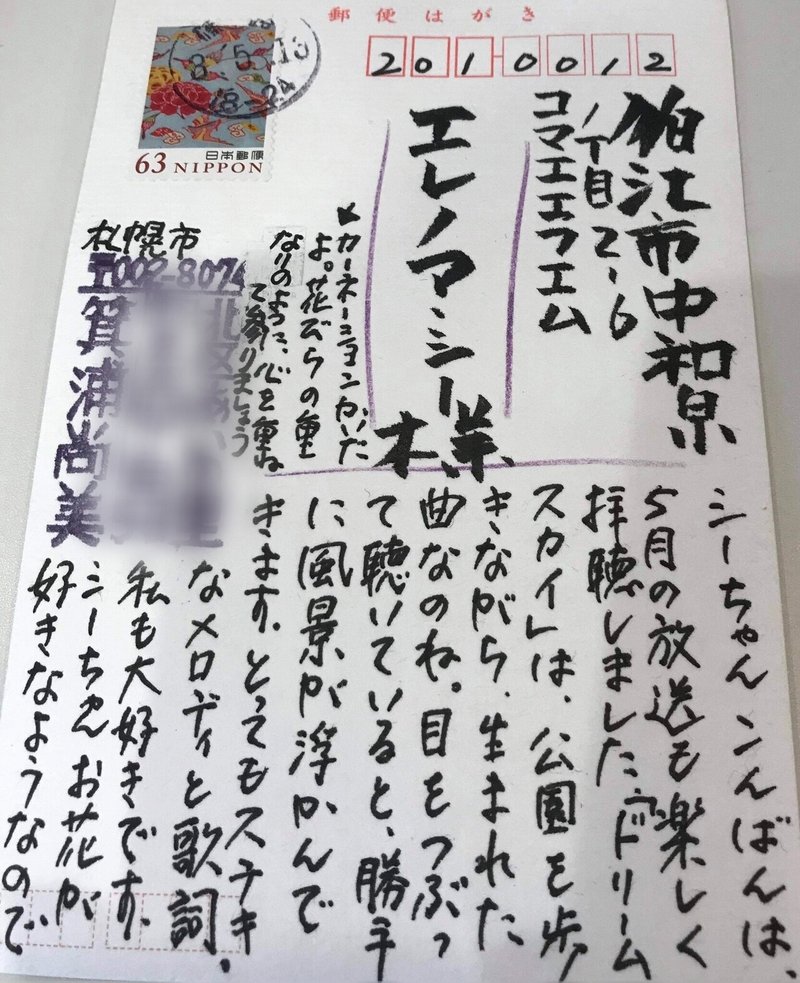 郵便はがき
8.5.13
18-24
63 NIPPON
日本郵便
201-0012
狛江市中和泉
1丁目2-6
コマエエフエム
エレノア・シー
様
シーちゃんこんばんは、
5月の放送も楽しく
拝聴しました。『ドリーム
スカイ』は、公園を歩
きながら、生まれた
曲なのね。目をつぶっ
て聴いていると、勝手
に風景が浮かんで
きます。とってもステキ
なメロディと歌詞。
私も大好きです。
シーちゃんお花が
好きなようなので
↙カーネーションかいた
よ。花びらの重
なりのように、心を重ね
て参りましょう
札幌市
〒002-8074
北区あい
箕浦尚美